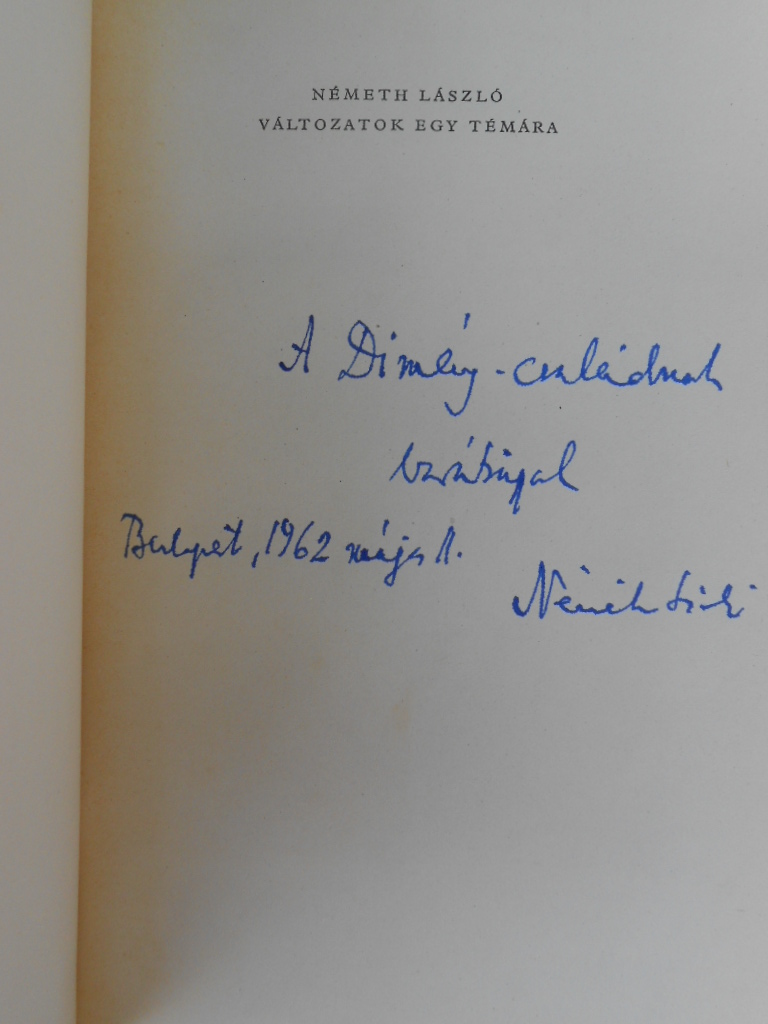 NÉMETH LÁSZLÓ
VÁLTOZATOK EGY TÉMÁRA
A Dimény-családnak
barátsággal
Budapest, 1962 május 1.
Németh László